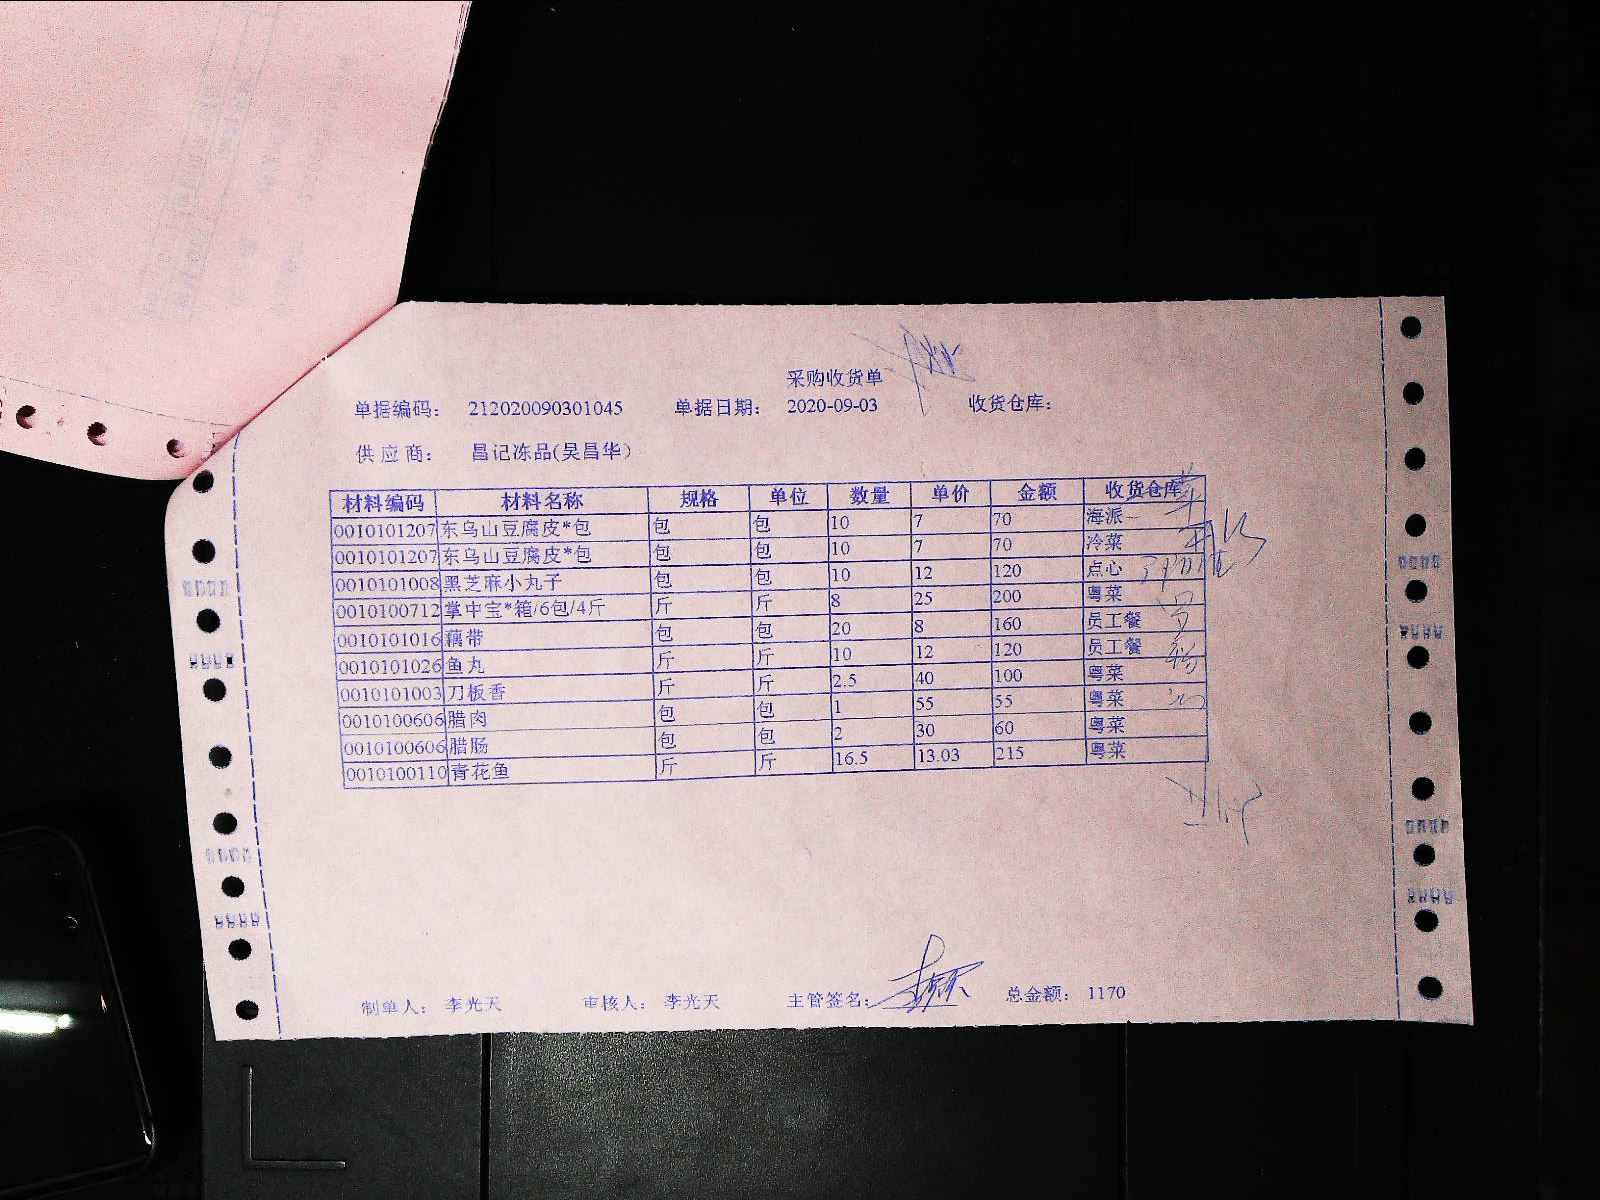 采购收货单
单据编码： 212020090301045 单据日期： 2020-09-03 收货仓库：
供应商： 昌记冻品(吴昌华)
材料编码 材料名称 规格 单位 数量 单价 金额 收货仓库
0010101207 东乌山豆腐皮*包 包 包 10 7 70 海派
0010101207 东乌山豆腐皮*包 包 包 10 7 70 冷菜
0010101008 黑芝麻小丸子 包 包 10 12 120 点心
0010100712 掌中宝*箱/6包/4斤 斤 斤 8 25 200 粤菜
0010101016 藕带 包 包 20 8 160 员工餐
0010101026 鱼丸 斤 斤 10 12 120 员工餐
0010101003 刀板香 斤 斤 2.5 40 100 粤菜
0010100606 腊肉 包 包 1 55 55 粤菜
0010100606 腊肠 包 包 2 30 60 粤菜
0010100110 青花鱼 斤 斤 16.5 13.03 215 粤菜
制单人： 李光天 审核人： 李光天 主管签名： 总金额： 1170